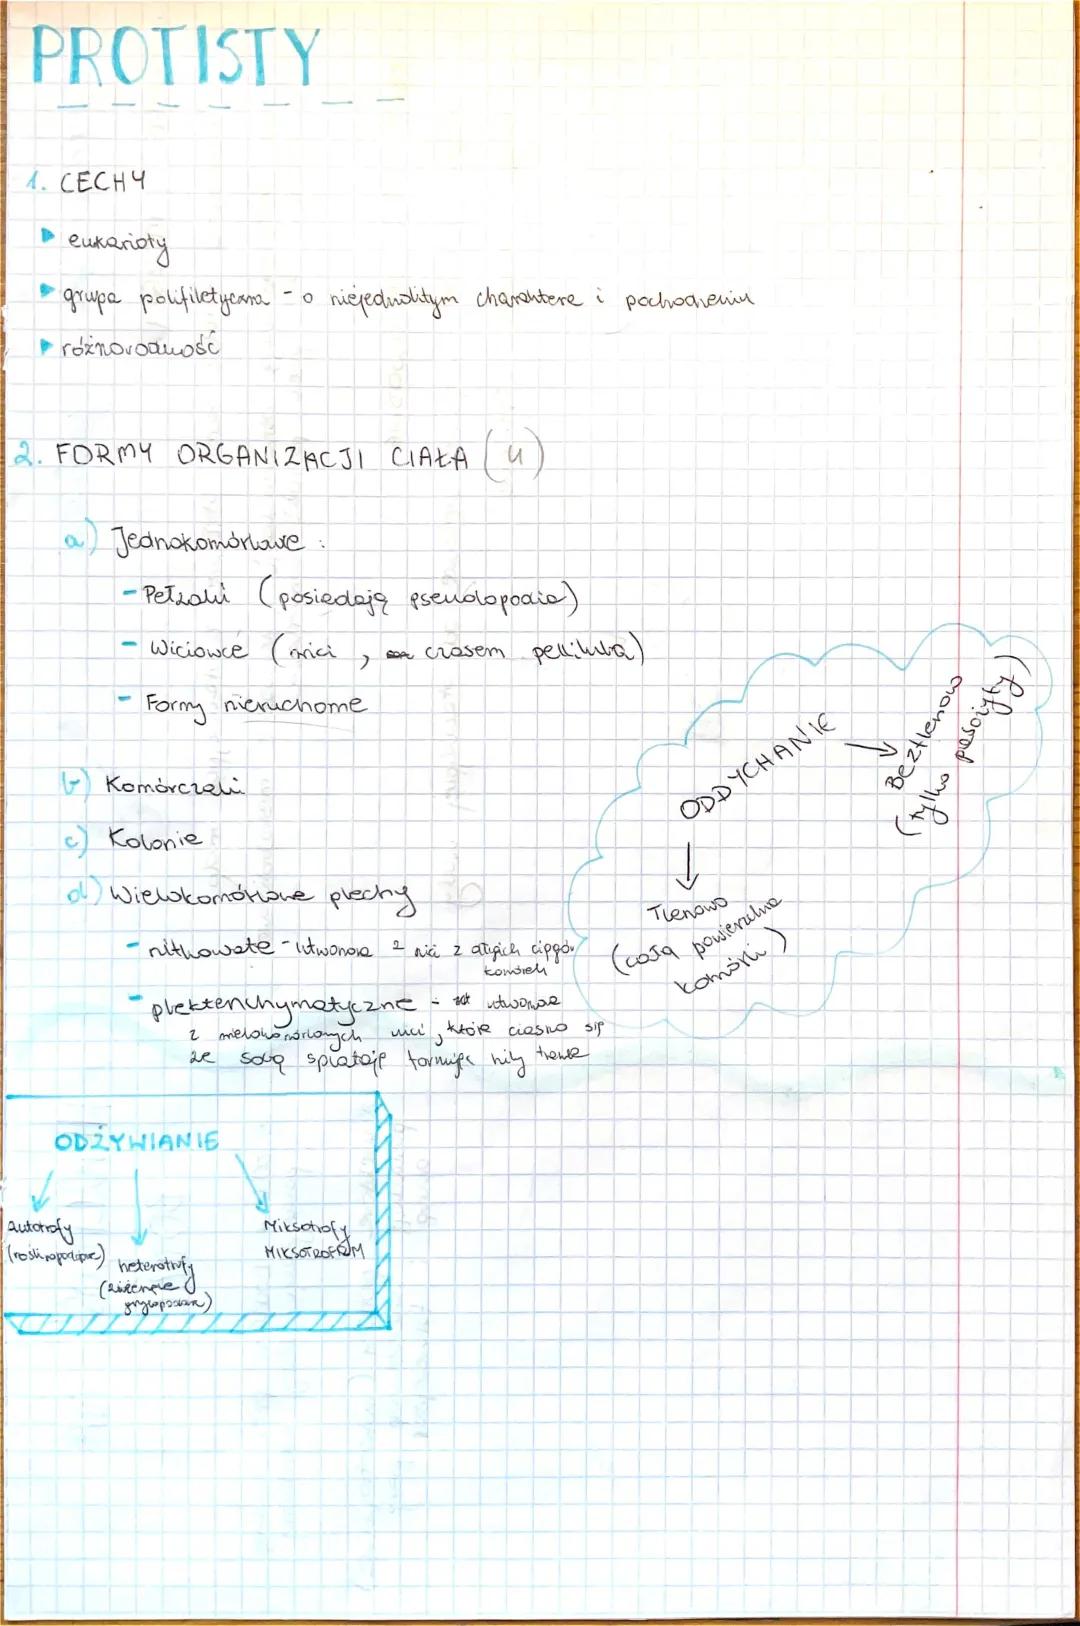 PROTISTY
1. CECHY
eukarioty
grupa polifiletyczna - o niejednolitym charakterze i pochodzeniu
różnorodność
2. FORMY ORGANIZACJI CIAŁA (4)
a) Jednokomórkowe :
- Pełzaki (posiadają pseudopodia)
- Wiciowce (wici , czasem pellikula)
- Formy nieruchome
b) Komórczaki
c) Kolonie
d) Wielokomórkowe plechy
- nitkowate - utworzone z nici z długich ciągów
komórek
- plektenchymatyczne - utworzone
z wielokomórkowych nici, które ciasno się
ze sobą splatają formując niby tkankę
ODDYCHANIE
Beztlenowo
(tylko pasożyty)
Tlenowo
(cała powierzchnia
komórki)
ODŻYWIANIE
Autotrofy
(roślinopodobne)
heterotrofy
(zwierzęce
grzybopodobne)
Miksotrofy
MIKSOTROFIZM